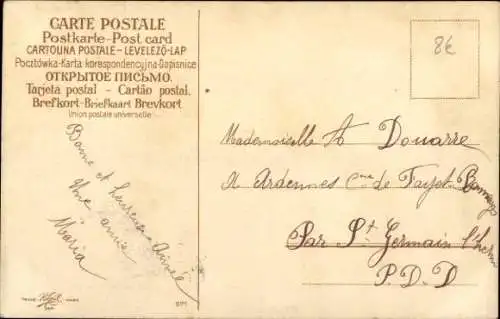 CARTE POSTALE
Postkarte-Post card
CARTOLINA POSTALE-LEVELEZŐ-LAP
Pocztówka-Karta korespondencyjna-Dopisnice
ОТКРЫТОЕ ПИСЬМО.
Tarjeta postal - Cartão postal.
Brefkort-Briefkaart Brevkort
Union postale universelle
8€
Bonne et heureuse année
Une amie
Maria
Mademoiselle A Douarre
A Ardennes Cne de Fayet
Par St Germain l'herm
P.D.D